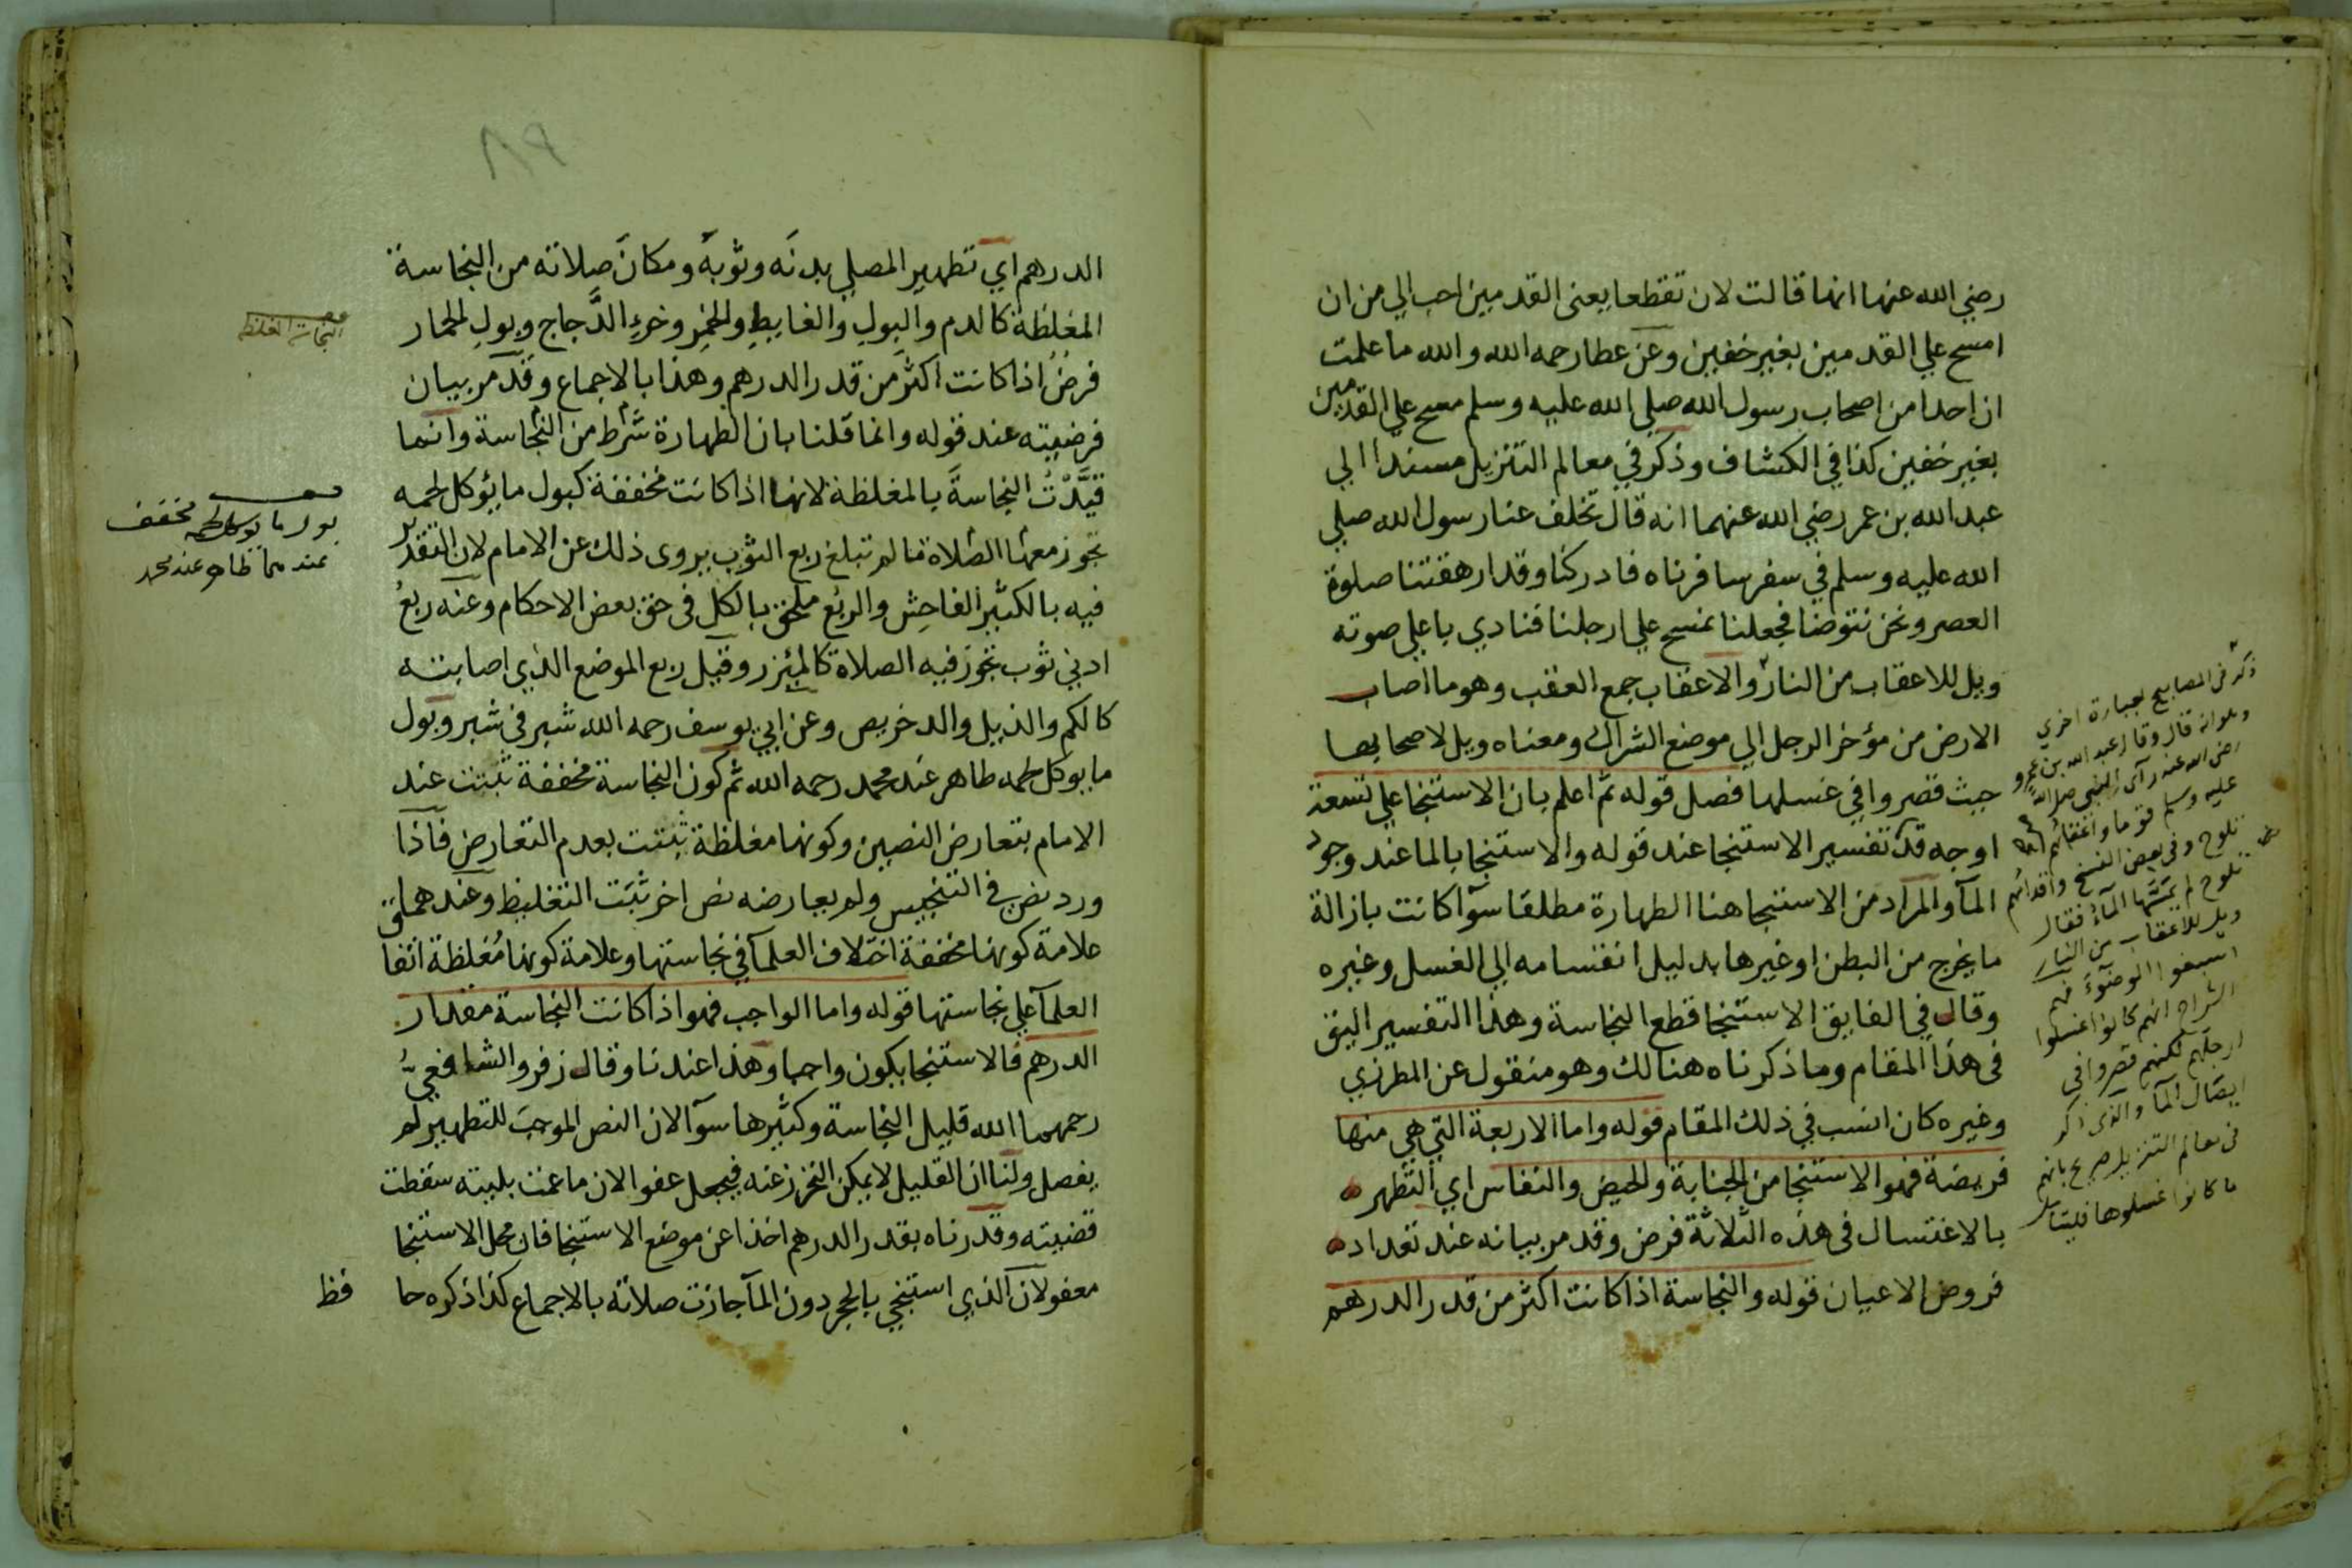 رضي الله عنها انها قالت لان تقطعا يعنى القدمين احب الي من ان
امسح علي القدمين بغير خفين وعن عطا رحمه الله والله ما علمت
ان احدا من اصحاب رسول الله صلي الله عليه وسلم مسح علي القدمين
بغير خفين كذا في الكشاف وذكر في معالم التنزيل مسندا الي
عبد الله بن عمر رضي الله عنهما انه قال تخلف عنا رسول الله صلي
الله عليه وسلم في سفر سافرناه فادركنا وقد ارهقتنا صلوة
العصر ونحن نتوضا فجعلنا نمسح علي ارجلنا فنادي باعلي صوته
ويل للاعقاب من النار والاعقاب جمع العقب وهو ما اصاب
الارض من مؤخر الرجل الي موضع الشراك ومعناه ويل لاصحابها
حيث قصروا في غسلها فصل قوله ثم اعلم بان الاستنجا علي تسعة
اوجه قد تفسير الاستنجا عند قوله والاستنجا بالما عند وجود
المآ والمراد من الاستنجا هنا الطهارة مطلقا سوآ كانت بازالة
ما يخرج من البطن او غيرها بدليل انقسامه الي الغسل وغيره
وقال في الفايق الاستنجا قطع النجاسة وهذا التفسير اليق
في هذا المقام وما ذكرناه هنالك وهو منقول عن المطرزي
وغيره كان انسب في ذلك المقام قوله واما الاربعة التي هي منها
فريضة فهو الاستنجا من الجنابة والحيض والنفاس اي التطهر
بالاغتسال في هذه الثلاثة فرض وقد مر بيانه عند تعداد
فروض الاعيان قوله والنجاسة اذا كانت اكثر من قدر الدرهم
ذكر في المصابيح بعبارة اخري
وهو انه قال وقال عبد الله بن عمرو
رضي الله عنه رآى النبي صلى الله
عليه وسلم قوما واعقابهم
تلوح وفي بعض النسخ واقدامهم
تلوح لم يمسها المآء فقال
ويل للاعقاب من النار
اسبغوا الوضوء
الشراح انهم كانوا غسلوا
ارجلهم لكنهم قصروا في
ايصال المآ والذي ذكر
في معالم التنزيل صريح بانهم
ما كانوا غسلوها فليتامل
٨٩
الدرهم اي تطهير المصلي بدنه وثوبه ومكان صلاته من النجاسة
المغلظة كالدم والبول والغايط والخمر وخرء الدجاج وبول الحمار
فرض اذا كانت اكثر من قدر الدرهم وهذا بالاجماع وقد مر بيان
فرضيته عند قوله وانما قلنا بان الطهارة شرط من النجاسة وانما
قيدت النجاسة بالمغلظة لانها اذا كانت مخففة كبول ما يؤكل لحمه
تجوز معها الصلاة ما لم تبلغ ربع الثوب يروى ذلك عن الامام لان التقدير
فيه بالكثير الفاحش والربع ملحق بالكل في حق بعض الاحكام وعنه ربع
ادني ثوب تجوز فيه الصلاة كالمئزر وقيل ربع الموضع الذي اصابته
كالكم والذيل والدخريص وعن ابي يوسف رحمه الله شبر في شبر وبول
ما يوكل لحمه طاهر عند محمد رحمه الله ثم كون النجاسة مخففة تثبت عند
الامام بتعارض النصين وكونها مغلظة تثبت بعدم التعارض فاذا
ورد نص في التنجيس ولم يعارضه نص اخر ثبت التغليظ وعندهما
علامة كونها مخففة اختلاف العلمآ في نجاستها وعلامة كونها مغلظة اتفا
العلمآ علي نجاستها قوله واما الواجب فهو اذا كانت النجاسة مقدار
الدرهم فالاستنجا يكون واجبا وهذا عندنا وقال زفر والشافعي
رحمهما الله قليل النجاسة وكثيرها سوآ لان النص الموجب للتطهير لم
يفصل ولنا ان القليل لا يمكن التحرز عنه فيجعل عفوا لان ما عمت بليته سقطت
قضيته وقدرناه بقدر الدرهم اخذا عن موضع الاستنجا فان محل الاستنجا
معفو لان الذي استنجي بالحجر دون المآ جازت صلاته بالاجماع كذا ذكره حا
فظ
النجاسة الغلظ
بول ما يوكل لحمه مخفف
عندهما طاهر عند محمد